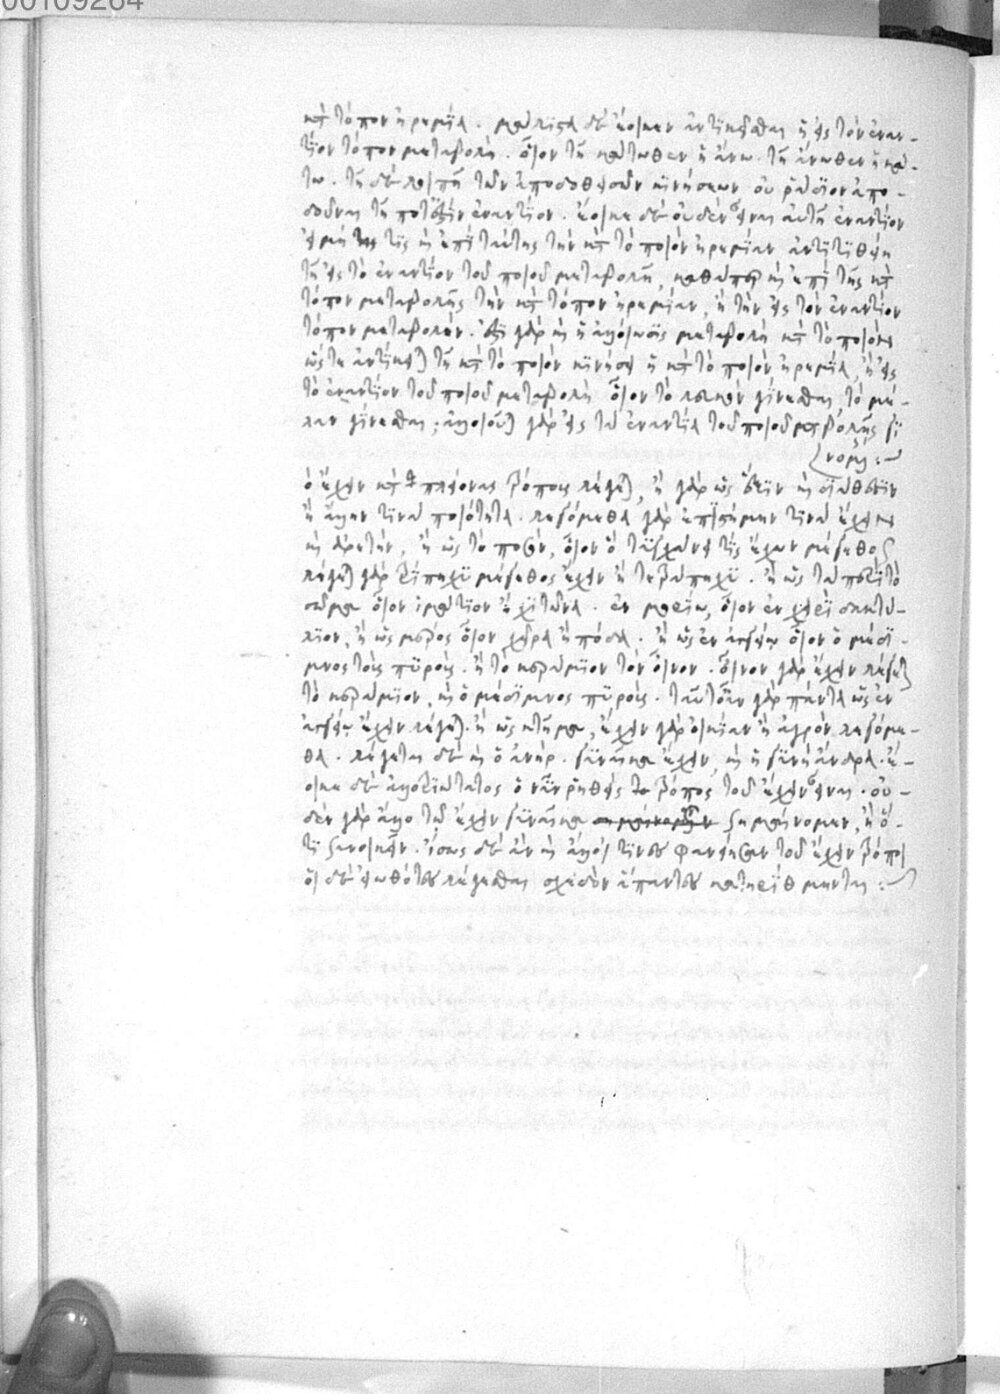 00109264
κατὰ τόπον ἠρεμία. μάλιστα δὲ ἔοικεν ἀντικεῖσθαι ἡ εἰς τὸν ἐναν-
τίον τόπον μεταβολή. οἷον τῇ κάτωθεν ἡ ἄνω. τῇ ἄνωθεν ἡ κά-
τω. τῇ δὲ λοιπῇ τῶν ἀποδοθεισῶν κινήσεων οὐ ῥάδιον ἀπο-
δοῦναι τί ποτέ ἐστιν ἐναντίον. ἔοικε δὲ οὐδὲν εἶναι αὐτῇ ἐναντίον
εἰ μή τις καὶ ἐπὶ ταύτης τὴν κατὰ τὸ ποιὸν ἠρεμίαν ἀντιτιθείη
τῇ εἰς τὸ ἐναντίον τοῦ ποιοῦ μεταβολῇ, καθάπερ καὶ ἐπὶ τῆς κατὰ
τόπον μεταβολῆς τὴν κατὰ τόπον ἠρεμίαν, ἢ τὴν εἰς τὸν ἐναντίον
τόπον μεταβολήν. ἔστι γὰρ καὶ ἡ ἀλλοίωσις μεταβολὴ κατὰ τὸ ποιόν
ὥστε ἀντίκειται τῇ κατὰ τὸ ποιὸν κινήσει ἡ κατὰ τὸ ποιὸν ἠρεμία, ἢ εἰς
τὸ ἐναντίον τοῦ ποιοῦ μεταβολὴ οἷον τὸ λευκὸν γίνεσθαι τὸ μέ-
λαν γίνεσθαι; ἀλλοιοῦται γὰρ εἰς τὰ ἐναντία τοῦ ποιοῦ μεταβολῆς γι
νομένης:
ὁ ἔχειν κατὰ πλείονας τρόπους λέγεται, ἢ γὰρ ὡς ἕξιν καὶ διάθεσιν
ἢ ἄλλην τινὰ ποιότητα. λεγόμεθα γὰρ ἐπιστήμην τινὰ ἔχειν
καὶ ἀρετήν, ἢ ὡς τὸ ποσόν, οἷον ὃ τυγχάνει τις ἔχων μέγεθος
λέγεται γὰρ τρίπηχυ μέγεθος ἔχειν ἢ τετράπηχυ. ἢ ὡς τὰ περὶ τὸ
σῶμα οἷον ἱμάτιον ἢ χιτῶνα. ἐν μορίῳ, οἷον ἐν χειρὶ δακτύ-
λιον, ἢ ὡς μέρος οἷον χεῖρα ἢ πόδα. ἢ ὡς ἐν ἀγγείῳ οἷον ὁ μέδι-
μνος τοὺς πυρούς. ἢ τὸ κεράμιον τὸν οἶνον. οἶνον γὰρ ἔχειν λέγεται
τὸ κεράμιον, καὶ ὁ μέδιμνος πυρούς. ταῦτ' οὖν γὰρ πάντα ὡς ἐν
ἀγγείῳ ἔχειν λέγεται. ἢ ὡς κτῆμα, ἔχειν γὰρ οἰκίαν ἢ ἀγρὸν λεγόμε-
θα. λέγεται δὲ καὶ ὁ ἀνήρ. γυναῖκα ἔχειν, καὶ ἡ γυνὴ ἄνδρα. ἔ-
οικε δὲ ἀλλοτριώτατος ὁ νῦν ῥηθεὶς τρόπος τοῦ ἔχειν εἶναι. οὐ-
δὲν γὰρ ἄλλο τῷ ἔχειν γυναῖκα σημαίνομεν, ἢ ὅ-
τι συνοικεῖν. ἴσως δὲ ἂν καὶ ἄλλοι τινὲς φανείησαν τοῦ ἔχειν τρόποι
οἱ δὲ εἰωθότες λέγεσθαι σχεδὸν ἅπαντες κατηρίθμηνται: